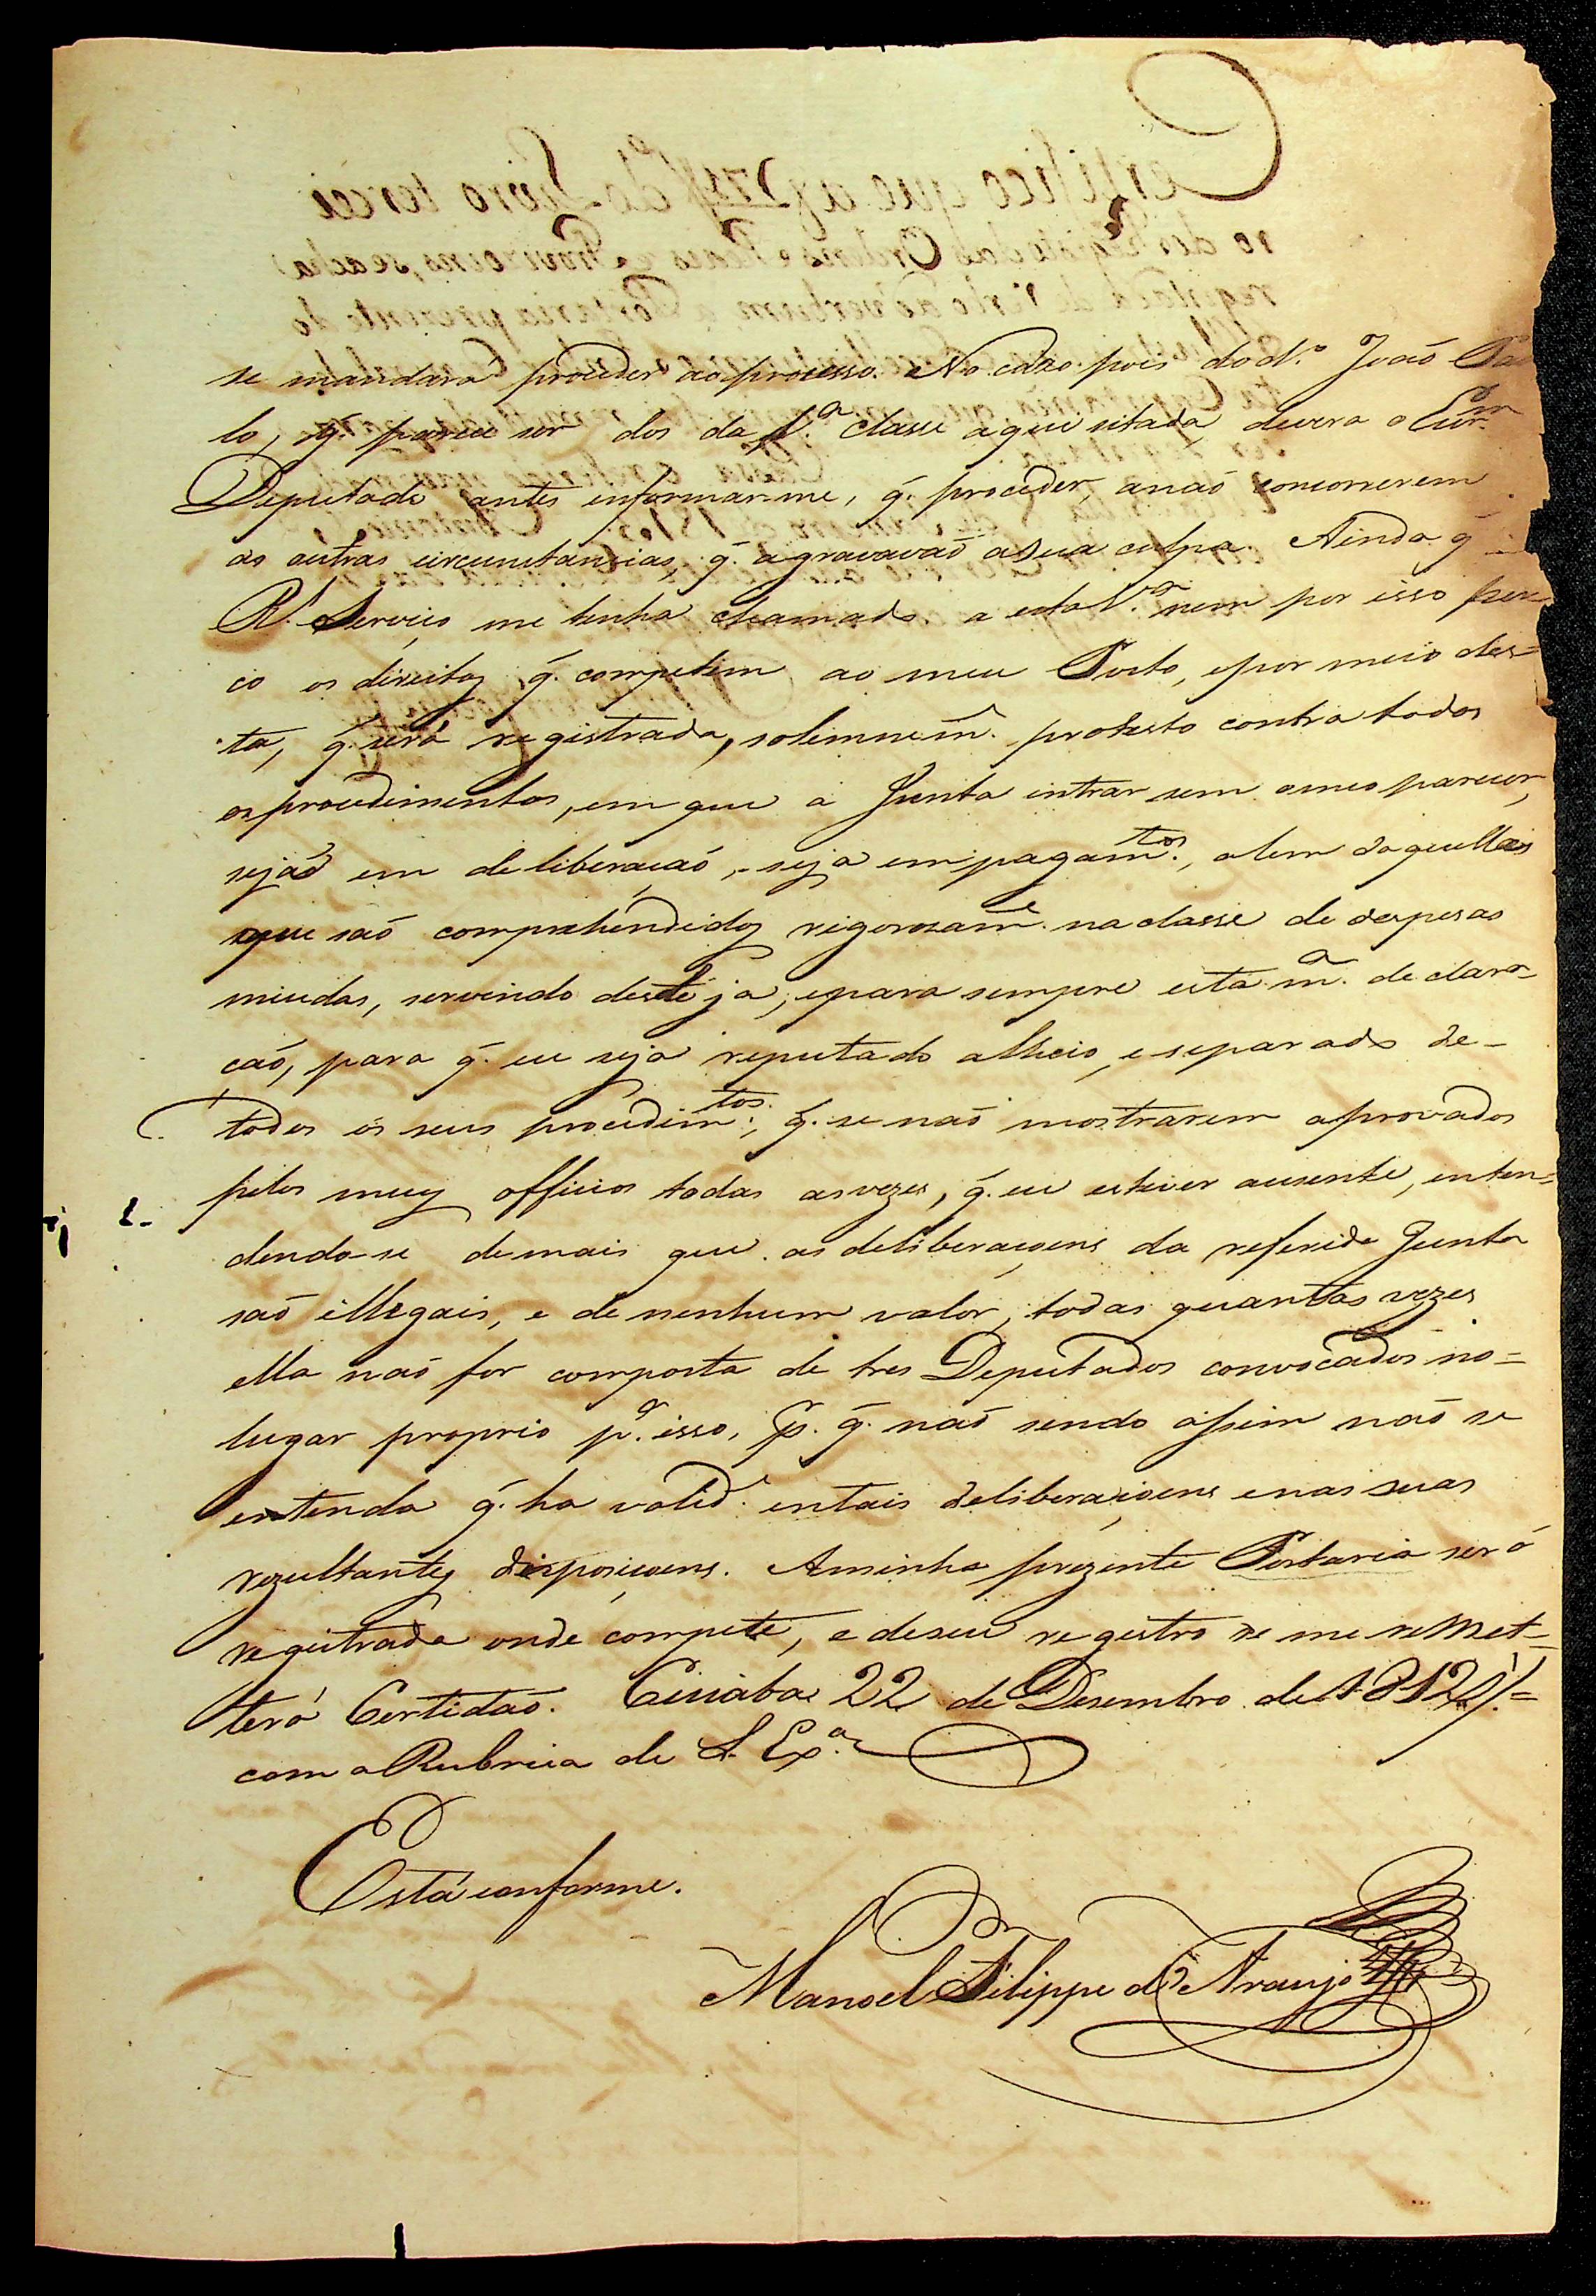 se mandara proceder ao processo. No cazo pois do d.º João Pau
lo, q̃. parece ser dos da 1.ª classe aqui sitada, devera o Escr.m
Deputado antes informar-me, q̃. proceder, a não concorrerem
as outras circunstancias, q̃. agravavão a sua culpa. Ainda q̃
R.l Serviço me tenha chamado a esta V.ª nem por isso per
co os direitos q̃. competem ao meu Posto, e por meio des=
ta, q̃. será registrada, solemnem.e protesto contra todos
os procedimentos, em que a Junta intrar sem o meo parecer,
sejão em deliberação, seja em pagam.tos, alem daquelles
que são comprehendidos rigorozam.e na classe de despesas
miudas, servindo desde já, e para sempre esta m.ª declara-
cão, para q̃. eu seja reputado alheio, e separado de-
todos os seus procedim.tos, q̃. se não mostrarem aprovados
pelos meus officios todas as vezes, q̃. eu estiver ausente, enten=
dendo-se demais que as deliberaçoens da referida Junta
são illegais, e de nenhum valor, todas quantas vezes
ella não for composta de tres Deputados convocados no=
lugar proprio p.ª isso, p. q̃. não sendo assim não se
entenda q̃. ha valid.e em tais deliberaçoens e nas suas
rezultantes disposiçoens. A minha prezente Portaria será
registrada onde compete, e de seu registro se me remet=
terá Certidão. Cuiabá 22 de Desembro de 1812 //=
com a Rubrica de S. Ex.ª
Está conforme.
Manoel Filippe de Araujo